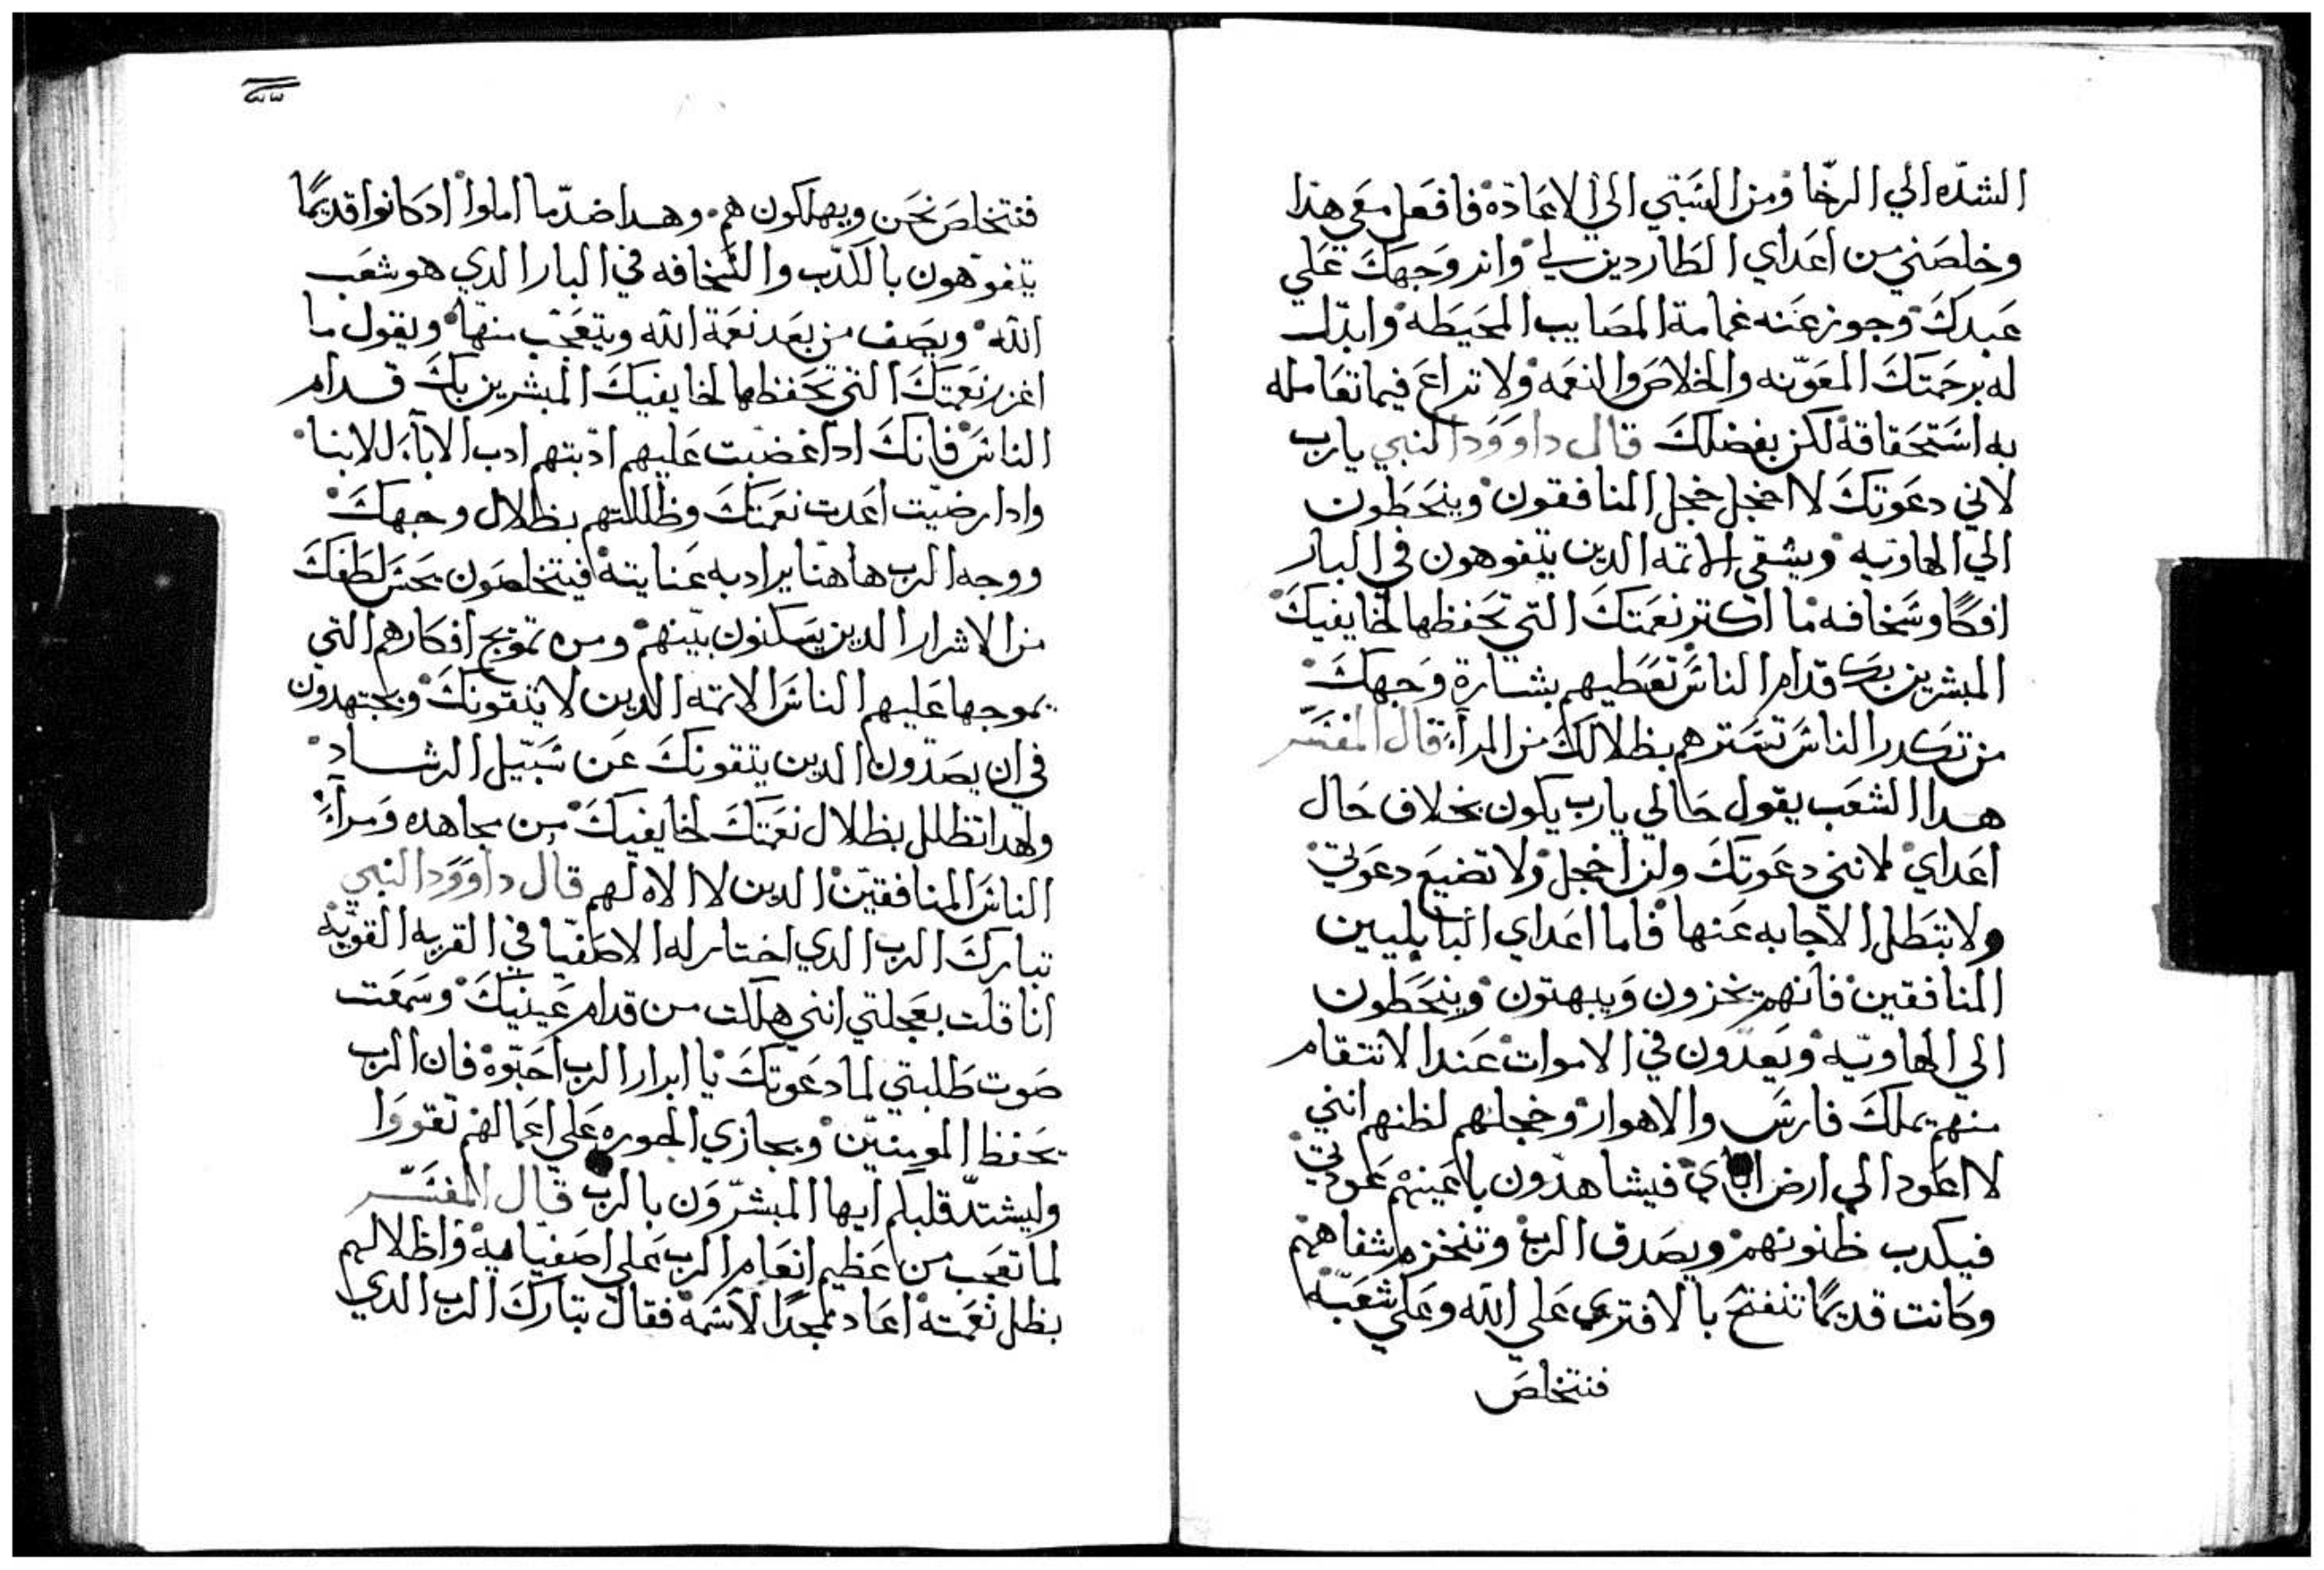 الشدّه الي الرخّا ومن السَبَي الى الاعَادَه فافعَل معَي هذا
وخلصَني من اعَداي الطاردين لي وانر وَجهَكَ عَلي
عَبدكَ وجوز عَنه غمامة المصَايب المحَيَطه وابدّل
له برحَمَتَكَ المعَوّنه والخلاصَ والنعَمه ولا تراعَ فيما تعَامله
به استَحَقاقه لكن بفضلكَ قال داوَوَد النبي يارب
لاني دعَوتكَ لا اخجل خجل المنافقون وينحَطون
الي الهاويه ويشقي الاتمه الدين يتفوهون في البار
افكًا وسَخافه ما اكتر نعَمتكَ التي تحَفظها لخايفيكَ
المبشرين بكَ قدام الناسَ تعَطيهم بشارة وَجهكَ
من تكدر الناسَ تسَترهم بظلالكَ من المرآء قال المفسَّر
هدا الشعَب يقول حَالي يارب يكون بخلاف حَال
اعَداي لانني دعَوتكَ ولن اخجل ولا تضيعَ دعَوتي
ولا تبَطل الاجابه عَنها فاما اعَداي البابليين
المنافقين فانهم يخزون وَيبهتون وينحَطون
الي الهاويّه ويعَدّون في الاموات عَند الانتقام
منهم بملكَ فارسَ والاهواز وخجلهم لظنهم انني
لا اعَود الي ارض اباي فيشاهدون باعَينهم عَودتي
فيكدب ظنونهم ويصَدق الرب وتنخزم شفاههم
وكانت قديمًا تنفتحَ بالافتري عَلي الله وعَلي شعَبه
فنتخلصَ
٣٣
فنتخلصَ نحَن ويهلكون هم وهدا ضدّ ما املوا ادكانوا قديمًا
يتفوّهون بالكدب والسَخافه في البار الدي هو شعَب
الله ويصَف من بعَد نعَمة الله ويتعَجّب منها ويقول ما
اغزر نعَمتكَ التي تحَفظها لخايفيكَ المبشرين بكَ قدام
الناسَ فانكَ ادا غضبت عَليهم ادّبتهم ادب الاباء للابنا
وادا رضيّت اعَدت نعَمتكَ وظللتهم بظلال وجهكَ
ووجه الرب هاهنا يراد به عَنايته فيتخلصَون بحَسَن لطفكَ
من الاشرار الدين يسَكنون بيّنهم ومن تموّج افكارهم التي
يموجها عَليهم الناسَ الاتمه الدين لا يتقونكَ ويجتهدون
في ان يصَدّون الدين يتقونكَ عَن سَبيّل الرشاد
ولهدا تظلل بظلال نعَمتكَ لخايفيكَ من مجاهده وَمرآء
الناسَ المنافقيّن الدين لا الاه لهم قال داوَوَد النبي
تباركَ الرب الدي اختار له الاصَفيّا في القريه القويّه
انا قلت بعَجلتي انني هلكت من قدام عَينيكَ وسَمَعت
صَوت طلبتي لما دعَوتكَ يا ابرار الرب احَبّوه فان الرب
يحَفظ المومنيّن ويجازي الجوره عَلي اعَمالهم تقووَا
وليشتدّ قلبكم ايها المبشرّوَن بالرب قال المفسَّر
لما تعَجب من عَظيم انعَام الرب عَلي اصَفيايه وَاظلالهم
بظل نعَمته اعَاد مجدًا لاسَمه فقال تباركَ الرب الدي